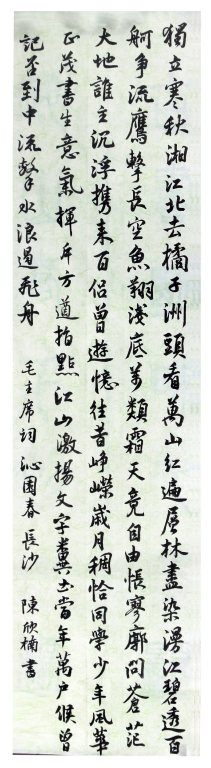 獨立寒秋湘江北去橘子洲頭看萬山红遍層林盡染漫江碧透百
舸争流鷹擊長空魚翔淺底萬類霜天竟自由悵寥廓問蒼茫
大地誰主沉浮携来百侣曾遊憶往昔崢嶸歲月稠恰同學少年風華
正茂書生意氣揮斥方遒指點江山激揚文字糞土當年萬户候曾
記否到中流擊水浪遏飛舟 毛主席词 沁園春 長沙 陳欣楠書